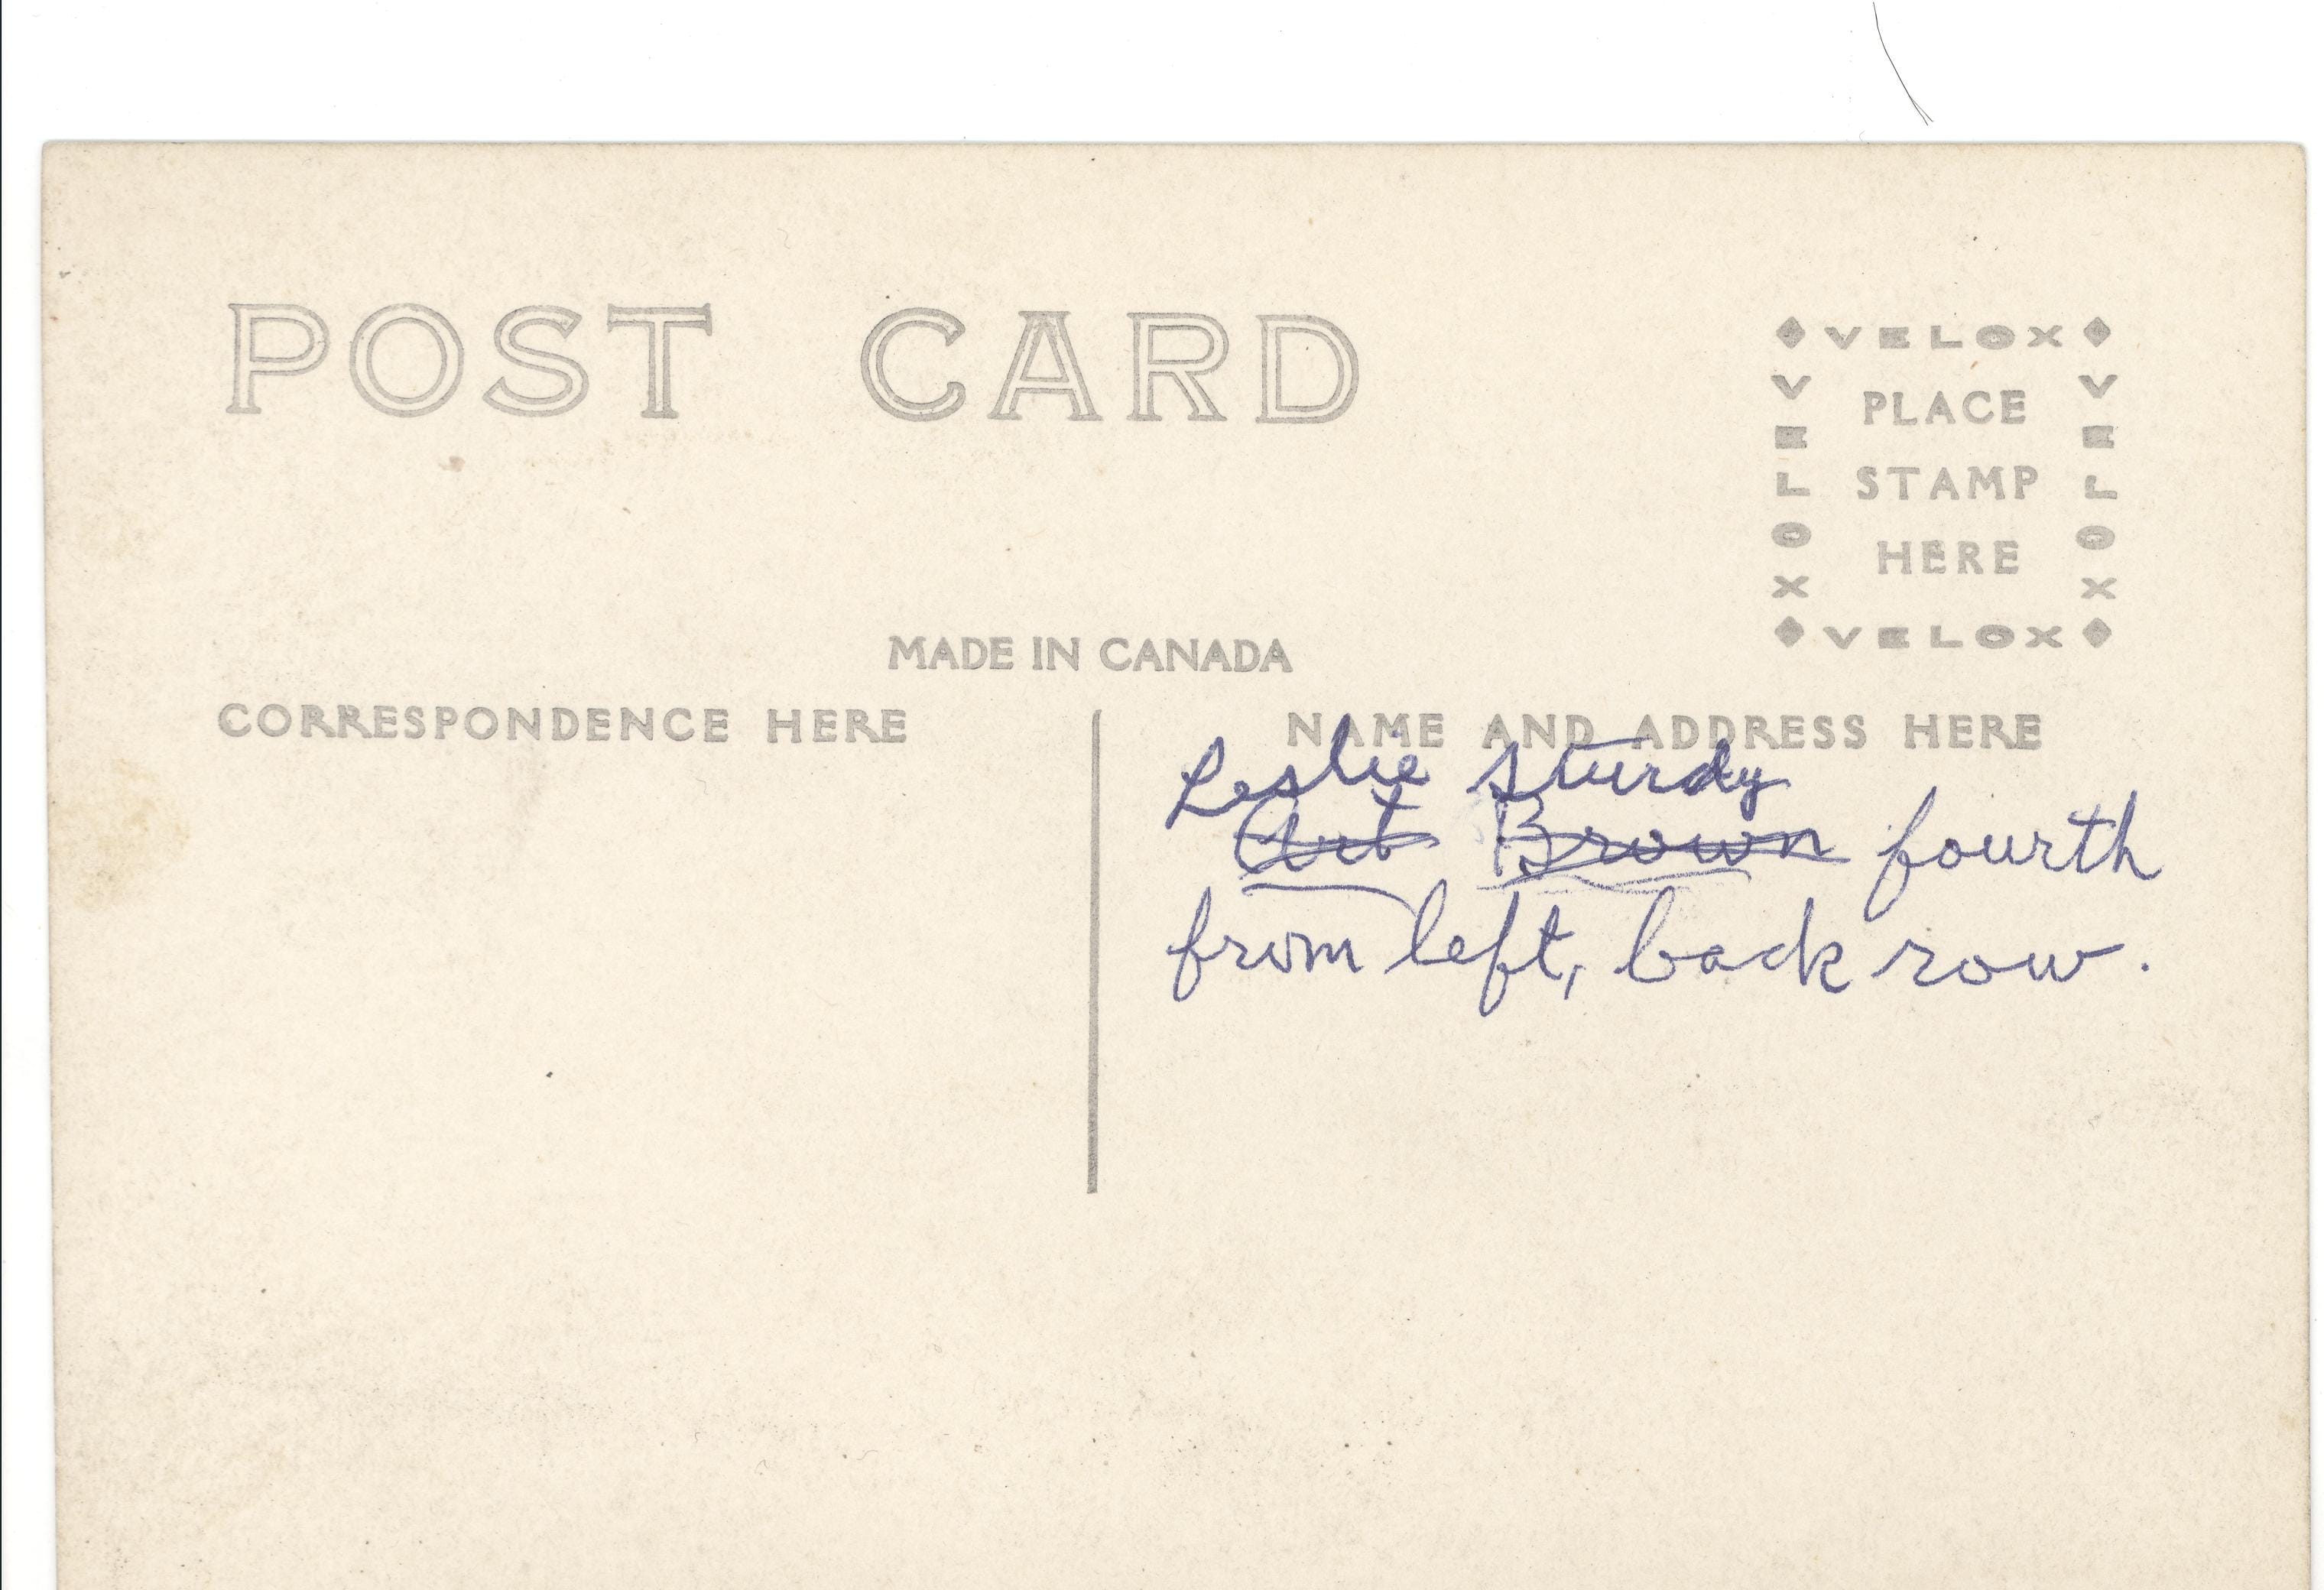 POST CARD
VELOX
VELOX
VELOX
PLACE
STAMP
HERE
VELOX
MADE IN CANADA
CORRESPONDENCE HERE
NAME AND ADDRESS HERE
Leslie Sturdy
Art Brown fourth
from left, back row.